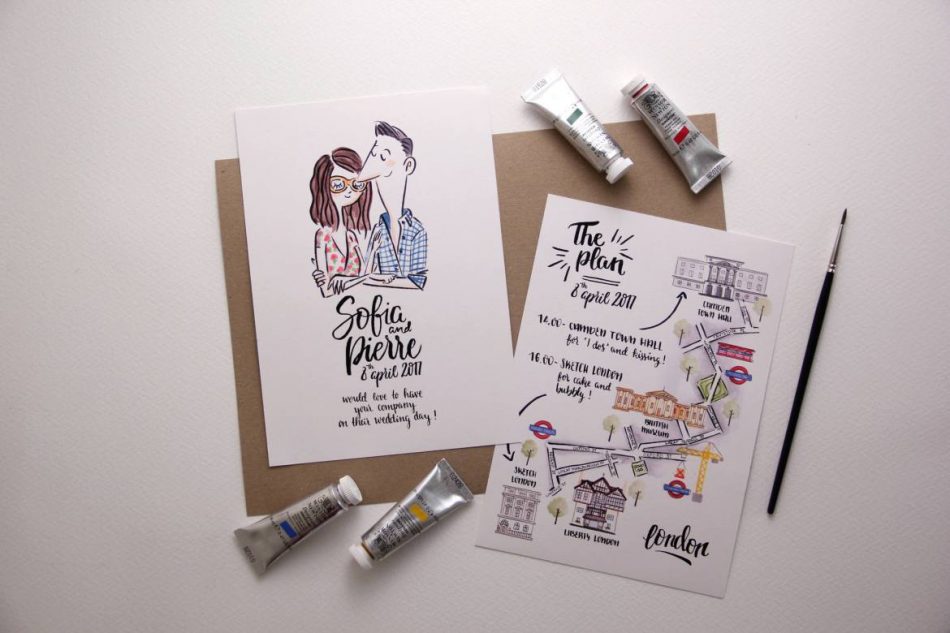 Sofia
and
Pierre
8th april 2017
would love to have
your company
on their wedding day!
The
plan
8th april 2017
14.00- CAMDEN TOWN HALL
for 'I dos' and kissing!
16.00- SKETCH LONDON
for cake and
bubbly!
CAMDEN
TOWN HALL
BRITISH
MUSEUM
SKETCH
LONDON
LIBERTY LONDON
london